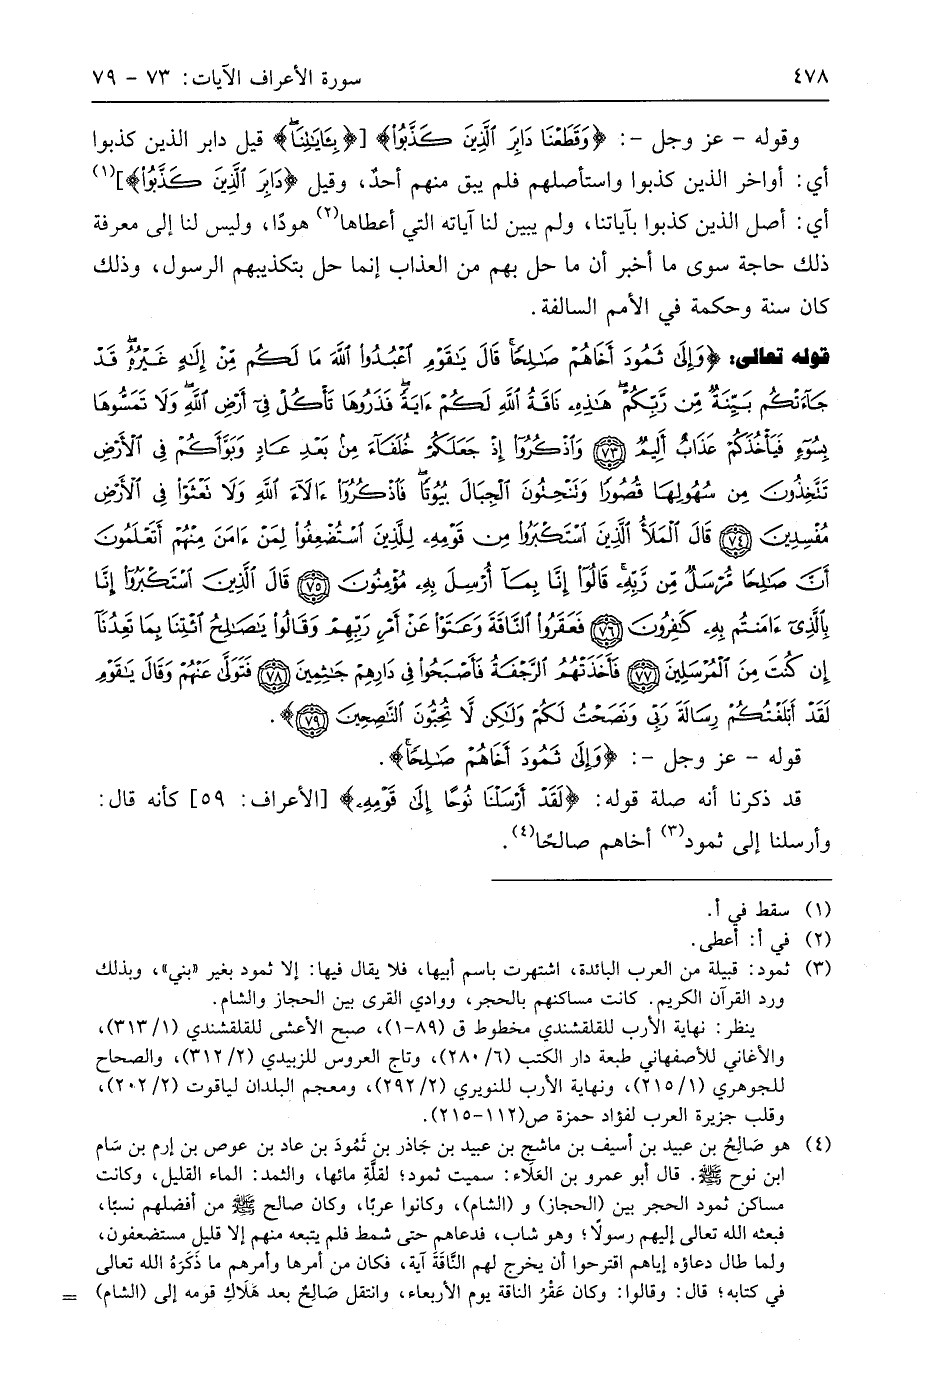 ٤٧٨ سورة الأعراف الآيات: ٧٣ - ٧٩
وقوله - عز وجل -: ﴿وَقَطَعْنَا دَابِرَ ٱلَّذِينَ كَذَّبُوا۟﴾ [﴿بِـَٔايَـٰتِنَا ۖ﴾ قيل دابر الذين كذبوا
أي: أواخر الذين كذبوا واستأصلهم فلم يبق منهم أحدٌ، وقيل ﴿دَابِرَ ٱلَّذِينَ كَذَّبُوا۟﴾](١)
أي: أصل الذين كذبوا بآياتنا، ولم يبين لنا آياته التي أعطاها(٢) هودًا، وليس لنا إلى معرفة
ذلك حاجة سوى ما أخبر أن ما حل بهم من العذاب إنما حل بتكذيبهم الرسول، وذلك
كان سنة وحكمة في الأمم السالفة.
قوله تعالى: ﴿وَإِلَىٰ ثَمُودَ أَخَاهُمْ صَـٰلِحًا ۗ قَالَ يَـٰقَوْمِ ٱعْبُدُوا۟ ٱللَّهَ مَا لَكُم مِّنْ إِلَـٰهٍ غَيْرُهُۥ ۖ قَدْ
جَآءَتْكُم بَيِّنَةٌ مِّن رَّبِّكُمْ ۖ هَـٰذِهِۦ نَاقَةُ ٱللَّهِ لَكُمْ ءَايَةً ۖ فَذَرُوهَا تَأْكُلْ فِىٓ أَرْضِ ٱللَّهِ ۖ وَلَا تَمَسُّوهَا
بِسُوٓءٍ فَيَأْخُذَكُمْ عَذَابٌ أَلِيمٌ ۝٧٣ وَٱذْكُرُوٓا۟ إِذْ جَعَلَكُمْ خُلَفَآءَ مِنۢ بَعْدِ عَادٍ وَبَوَّأَكُمْ فِى ٱلْأَرْضِ
تَتَّخِذُونَ مِن سُهُولِهَا قُصُورًا وَتَنْحِتُونَ ٱلْجِبَالَ بُيُوتًا ۖ فَٱذْكُرُوٓا۟ ءَالَآءَ ٱللَّهِ وَلَا تَعْثَوْا۟ فِى ٱلْأَرْضِ
مُفْسِدِينَ ۝٧٤ قَالَ ٱلْمَلَأُ ٱلَّذِينَ ٱسْتَكْبَرُوا۟ مِن قَوْمِهِۦ لِلَّذِينَ ٱسْتُضْعِفُوا۟ لِمَنْ ءَامَنَ مِنْهُمْ أَتَعْلَمُونَ
أَنَّ صَـٰلِحًا مُّرْسَلٌ مِّن رَّبِّهِۦ ۚ قَالُوٓا۟ إِنَّا بِمَآ أُرْسِلَ بِهِۦ مُؤْمِنُونَ ۝٧٥ قَالَ ٱلَّذِينَ ٱسْتَكْبَرُوٓا۟ إِنَّا
بِٱلَّذِىٓ ءَامَنتُم بِهِۦ كَـٰفِرُونَ ۝٧٦ فَعَقَرُوا۟ ٱلنَّاقَةَ وَعَتَوْا۟ عَنْ أَمْرِ رَبِّهِمْ وَقَالُوا۟ يَـٰصَـٰلِحُ ٱئْتِنَا بِمَا تَعِدُنَآ
إِن كُنتَ مِنَ ٱلْمُرْسَلِينَ ۝٧٧ فَأَخَذَتْهُمُ ٱلرَّجْفَةُ فَأَصْبَحُوا۟ فِى دَارِهِمْ جَـٰثِمِينَ ۝٧٨ فَتَوَلَّىٰ عَنْهُمْ وَقَالَ يَـٰقَوْمِ
لَقَدْ أَبْلَغْتُكُمْ رِسَالَةَ رَبِّى وَنَصَحْتُ لَكُمْ وَلَـٰكِن لَّا تُحِبُّونَ ٱلنَّـٰصِحِينَ ۝٧٩﴾.
قوله - عز وجل -: ﴿وَإِلَىٰ ثَمُودَ أَخَاهُمْ صَـٰلِحًا ۗ﴾.
قد ذكرنا أنه صلة قوله: ﴿لَقَدْ أَرْسَلْنَا نُوحًا إِلَىٰ قَوْمِهِۦ﴾ [الأعراف: ٥٩] كأنه قال:
وأرسلنا إلى ثمود(٣) أخاهم صالحًا(٤).
(١) سقط في أ.
(٢) في أ: أعطى.
(٣) ثمود: قبيلة من العرب البائدة، اشتهرت باسم أبيها، فلا يقال فيها: إلا ثمود بغير «بني»، وبذلك
ورد القرآن الكريم. كانت مساكنهم بالحجر، ووادي القرى بين الحجاز والشام.
ينظر: نهاية الأرب للقلقشندي مخطوط ق (٨٩-١)، صبح الأعشى للقلقشندي (١/ ٣١٣)،
والأغاني للأصفهاني طبعة دار الكتب (٦/ ٢٨٠)، وتاج العروس للزبيدي (٢/ ٣١٢)، والصحاح
للجوهري (١/ ٢١٥)، ونهاية الأرب للنويري (٢/ ٢٩٢)، ومعجم البلدان لياقوت (٢/ ٢٠٢)،
وقلب جزيرة العرب لفؤاد حمزة ص(١١٢-٢١٥).
(٤) هو صَالِحُ بن عبيد بن أسيف بن ماشج بن عبيد بن جَاذر بن ثَمُودَ بن عاد بن عوص بن إرم بن سَام
ابن نوح ﷺ. قال أبو عمرو بن العَلَاء: سميت ثمود؛ لقلَّةِ مائها، والثمد: الماء القليل، وكانت
مساكن ثمود الحجر بين (الحجاز) و (الشام)، وكانوا عربًا، وكان صالح ﷺ من أفضلهم نسبًا،
فبعثه الله تعالى إليهم رسولًا؛ وهو شاب، فدعاهم حتى شمط فلم يتبعه منهم إلا قليل مستضعفون،
ولما طال دعاؤه إياهم اقترحوا أن يخرج لهم النَّاقَةَ آية، فكان من أمرها وأمرهم ما ذَكَرَهُ الله تعالى
في كتابه؛ قال: وقالوا: وكان عَقْرُ الناقة يوم الأربعاء، وانتقل صَالِحٌ بعد هَلَاكِ قومه إلى (الشام) =